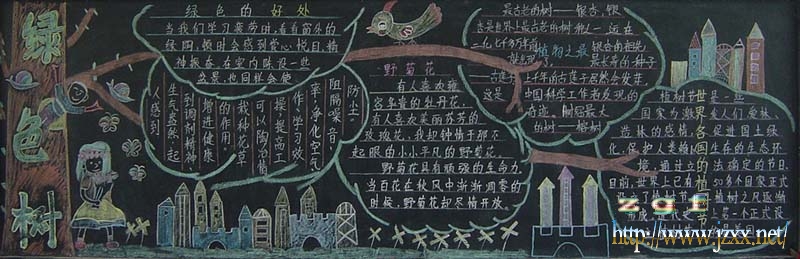 绿色树
绿色的好处
当我们学习疲劳时，看看窗外的
绿树，顿时会感到赏心悦目，精
神振奋。在室内陈设一些
盆景，也同样会使
人感到
生气盎然，起
到调剂精神，
增进健康
的作用。
栽种花草
可以陶冶情
操，提高工
作、学习效
率，净化空气，
阻隔噪音，
防尘。
野菊花
有人喜欢雍
容华贵的牡丹花，
有人喜欢美丽芬芳的
玫瑰花，我却钟情于那不
起眼的小小平凡的野菊花。
野菊花具有顽强的生命力，
当百花在秋风中渐渐凋零的
时候，野菊花却尽情开放。
植物之最
最古老的树——银杏，银杏
是世界上最古老的树种之一，远在
银杏的祖先
最长寿的种子
千年的古莲子居然会发芽，
这是中国科学工作者发现的
奇迹。
的树——榕树
世界各国的植树节
植树节是一些
国家为激发人们爱林、
造林的感情，促进国土绿
化，保护人类赖以生存的生态环
境，通过立法确定的节日。
目前，世界上已有50多个国家正式
植树之风逐渐
形成。
上第一个正式设
zgf
http://www.jzxx.net/